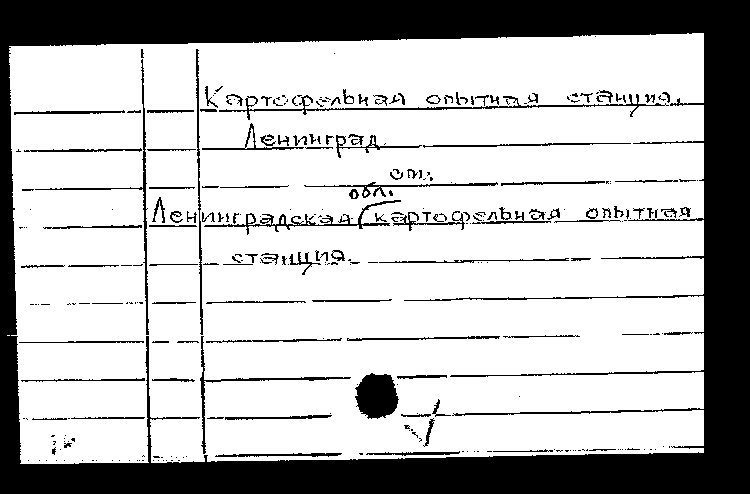 Картофельная опытная станция.
Ленинград
см.
обл.
Ленинградская картофельная опытная
станция.